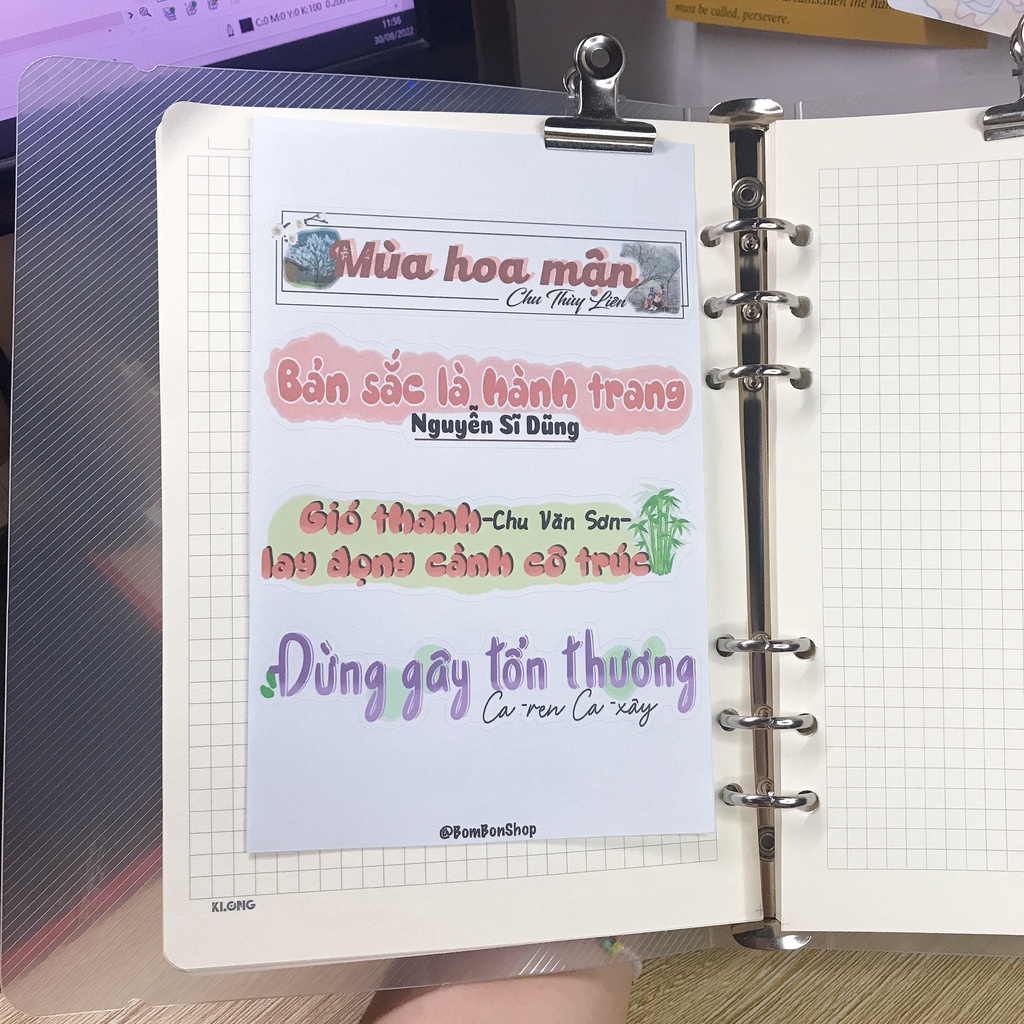 C:0 M:0 Y:0 K:100 0.200
11:56
30/08/2022
must be called, persevere.
Mùa hoa mận
Chu Thùy Liên
Bản sắc là hành trang
Nguyễn Sĩ Dũng
Gió thanh -Chu Văn Sơn-
lay động cành cô trúc
Đừng gây tổn thương
Ca-ren Ca-xây
@BomBonShop
KLONG